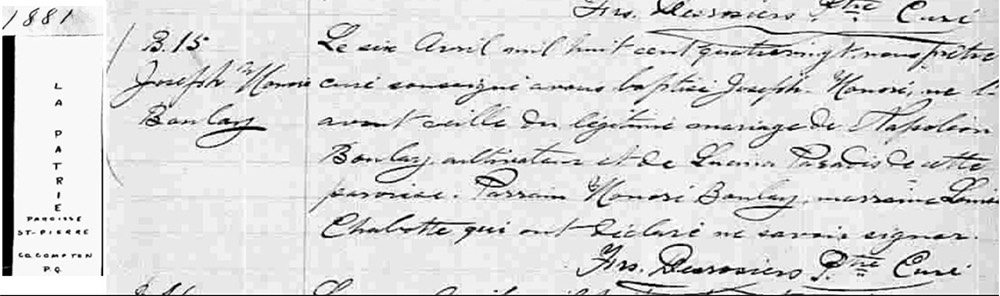 1881
LA PATRIE
PAROISSE
ST-PIERRE
CO COMPTON
P.Q.
Frs. Desrosiers Ptre Curé
B. 15
Joseph Honoré
Boulay
Le six Avril mil huit cent quatrevingt nous prêtre
curé soussigné avons baptisé Joseph-Honoré, né l'
avant veille du légitime mariage de Napoléon
Boulay cultivateur et de Paradis de cette
paroisse. Parrain Honoré Boulay, marraine Louise
Chabotte qui ont déclaré ne savoir signer.
Frs. Desrosiers Ptre Curé